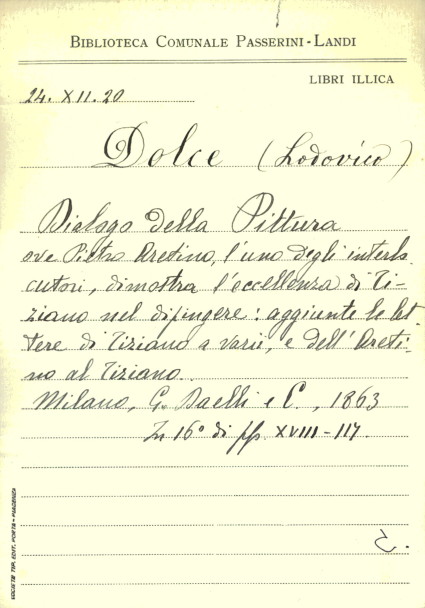 BIBLIOTECA COMUNALE PASSERINI-LANDI
LIBRI ILLICA
24. XII. 20
Dolce (Lodovico)
Dialogo della Pittura
ove Pietro Aretino, l'uno degli interlo-
cutori, dimostra l'eccellenza di Ti-
ziano nel dipingere: aggiunte le let-
tere di Tiziano a varii, e dell'Areti-
no al Tiziano.
Milano, G. Daelli e C., 1863
In 16° di pp. XVIII-117.
SOCIETÀ TIP. EDIT. PORTA - PIACENZA